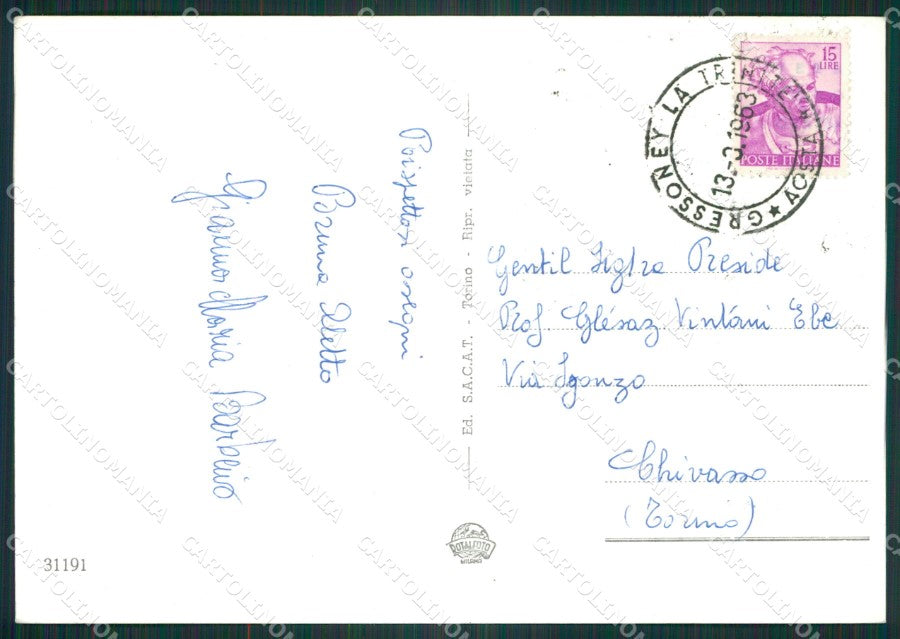 Rispettosi ossequi
Bruna Aletto
Gianna Maria Barberio
Ed. S.A.C.A.T. - Torino - Ripr. vietata
15
LIRE
POSTE ITALIANE
GRESSONEY LA TRINITE' AOSTA
13.-9.1963
Gentil Sig.ra Preside
Prof. Glésaz Vintóni Ebe
Via Isonzo
Chivasso
(Torino)
ROTALFOTO
MILANO
31191
CARTOLINOMANIA